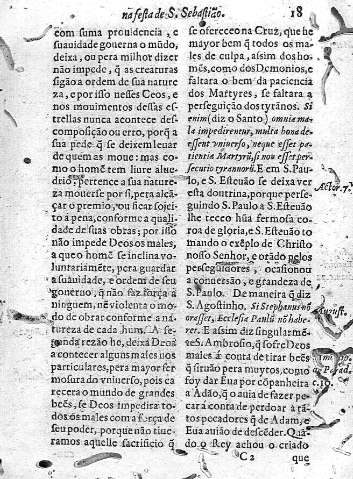 na festa de S. Sebastião. 18
com suma prouidencia, e
suauidade gouerna o mũdo,
deixa, ou pera milhor dizer
não impede, q̃ as creaturas
sigão a ordem de sua nature
za, e por isso nesses Ceos, e
nos mouimentos dessas es-
trellas nunca acontece des-
composição ou erro, porq̃ a
sua pede q̃ se deixem leuar
de quem as moue: mas co-
mo o homẽ tem liure alue-
drio, pertence a sua nature-
za mouerse por si, pera alcã-
çar o premio, ou ficar sojei-
to a pena, conforme a quali-
dade de suas obras; por isso
não impede Deos os males,
a que o homẽ se inclina vo-
luntariamẽte, pera guardar
a suauidade, e ordem de seu
gouerno, q̃ não faz força a
ninguem, nẽ violenta o mo-
do de obrar conforme a na-
tureza de cada hum. A se-
gunda rezão he, deixa Deos
a contecer alguns males nos
particulares, pera mayor fer
mosura do vniuerso, pois ca
recera o mundo de grandes
beẽs, se Deos impedira to-
dos os males com a força de
seu poder, porque não tiue-
ramos aquelle sacrificio q̃
se offereceo na Cruz, que he
mayor bem q̃ todos os ma-
les de culpa, assim dos ho-
mẽs, como dos Demonios, e
faltara o bem da paciencia
dos Martyres, se faltara a
perseguição dos tyrãnos. Si
enim (diz o Santo) omnia ma
la impedirentur, multa bona de-
essent vniuerso, neque esset pa
tientia Martyrũ, si nou esset per
secutio tyrannorũ. E em S. Pau
lo, e S. Esteuão se deixa ver
esta doutrina, porque perse-
guindo S. Paulo a S. Esteuão
lhe teceo hũa fermosa co-
roa de gloria, e S. Esteuão to
mando o exẽplo de Christo
nosso Senhor, e orãdo pelos
perseguidores, ocasionou
a conuersão, e grandeza de
S. Paulo. De maneira q̃ diz
S. Agostinho. Si Stephanus nõ
orasset, Ecclesia Paulũ nõ habe-
ret. E assim diz singularmẽ-
te S. Ambrosio, q̃ sofre Deos
males á conta de tirar beẽs
q̃ situão pera muytos, como
foy dar Eua por cõpanheira
a Adão, q̃ o auia de fazer pe-
car á conta de perdoar a tã-
tos pecadores q̃ de Adam, e
Eua auião de descẽder. Quã-
do o Rey achou o criado
Actor. 7.
August.
C 2 que